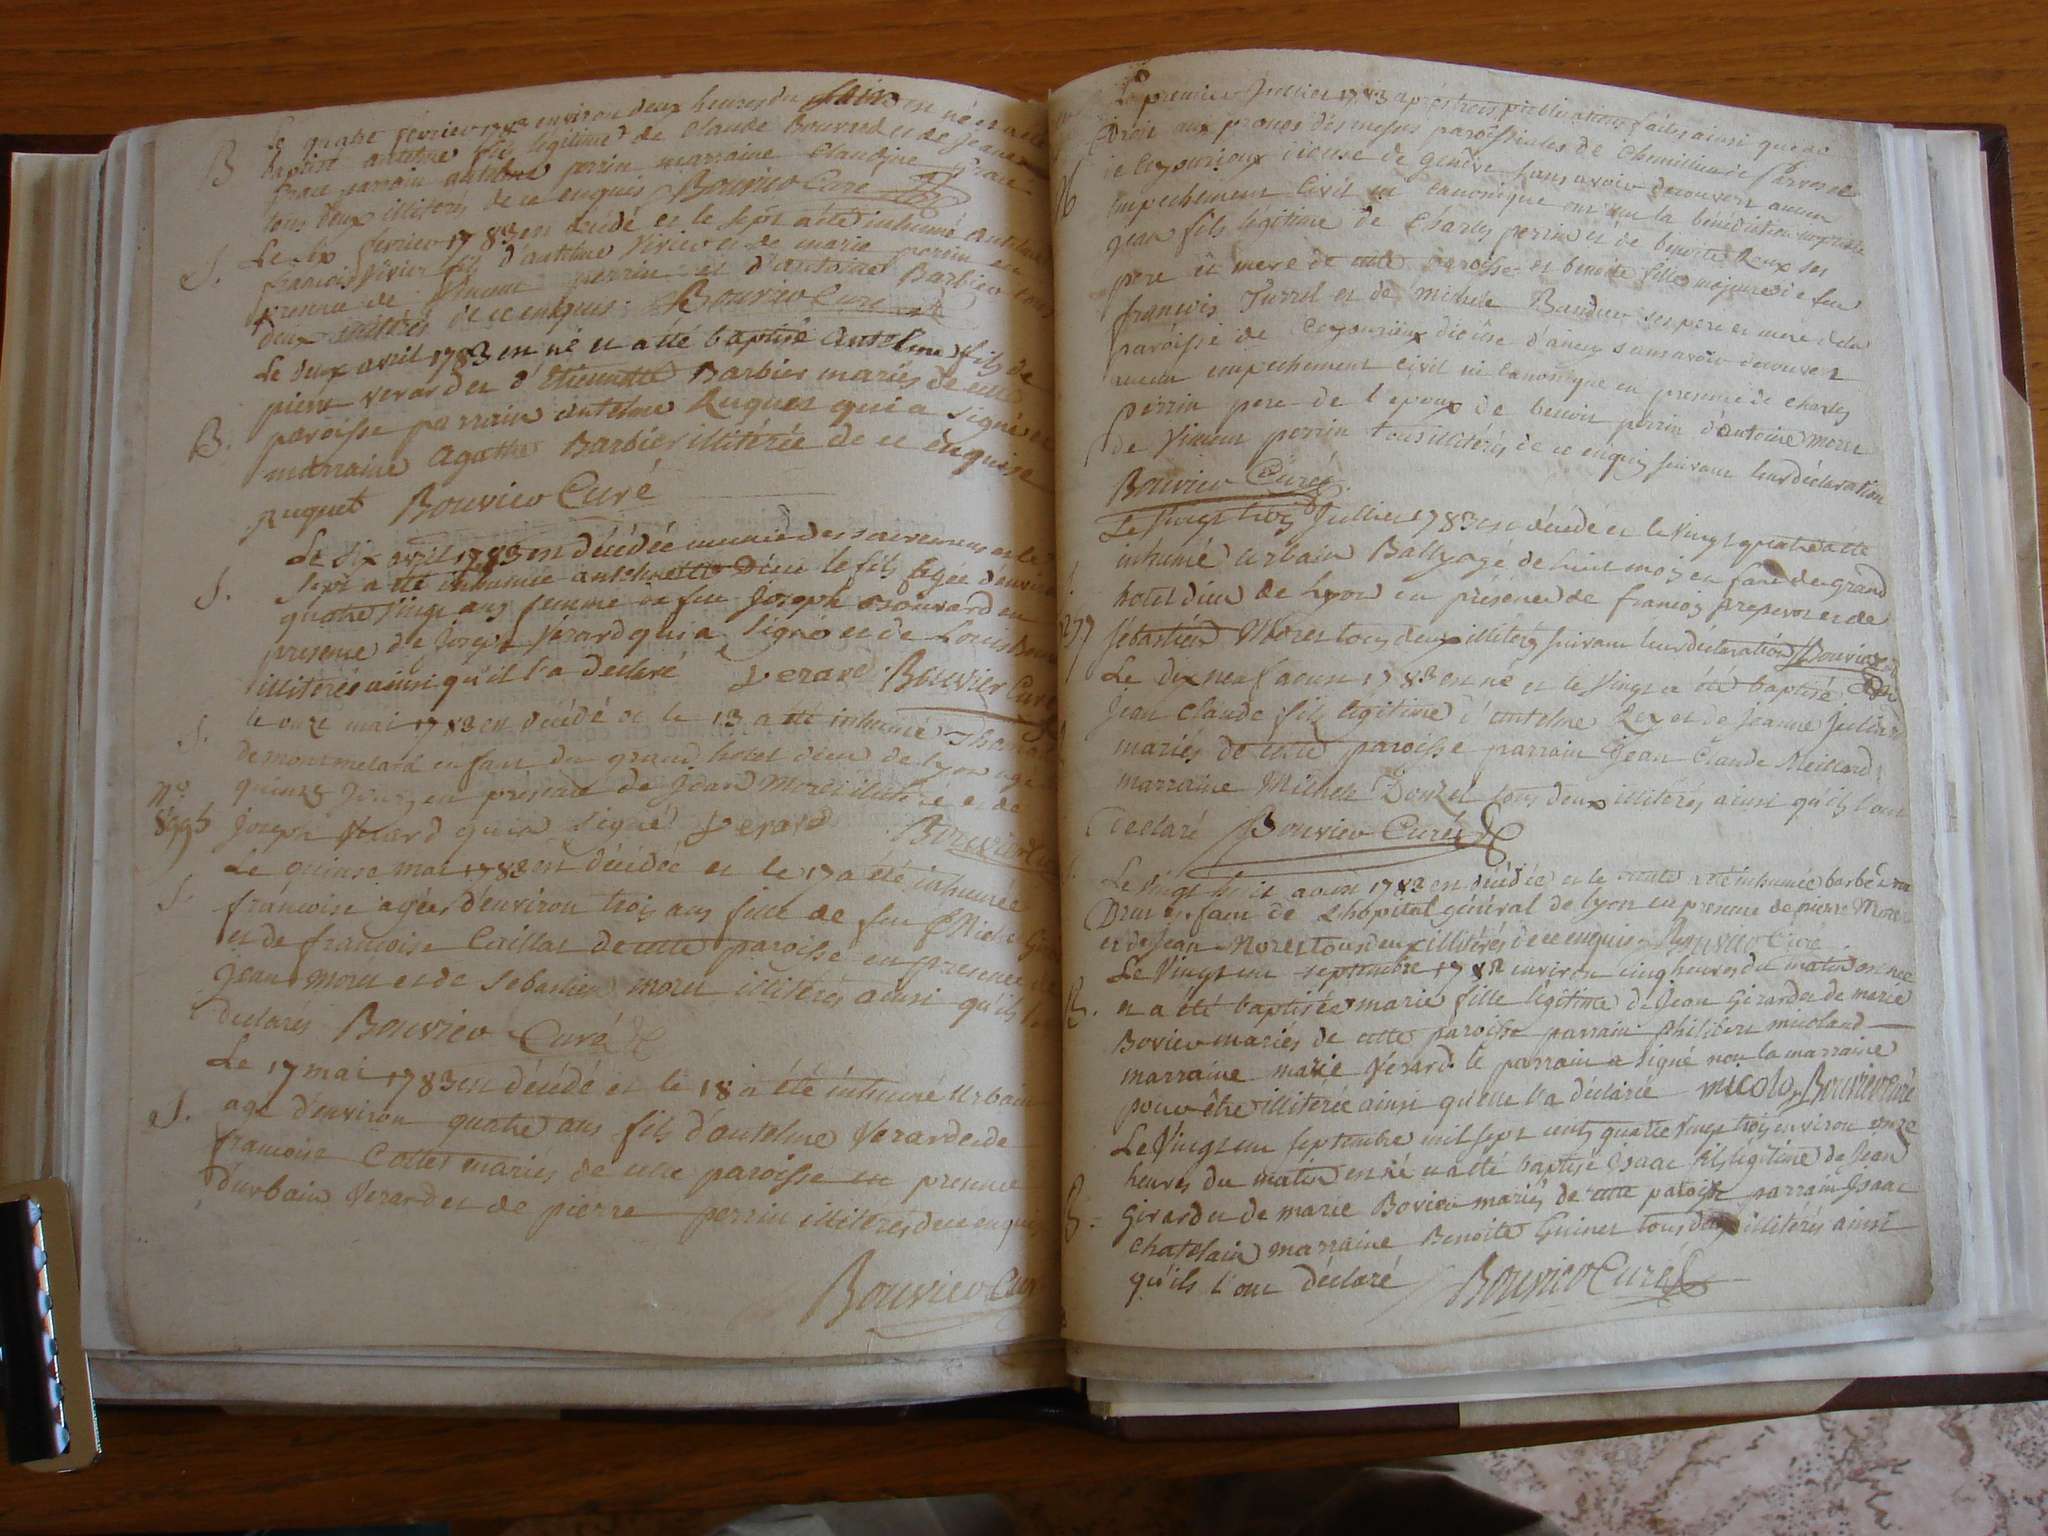 B Le quatre fevrier 1783 environ deux heures du est né et a été
baptisé antelme fils légitime de Claude Bouvard et de Jeanne
parrain antelme perrin marraine Claudine
tous deux illiterés de ce enquis Bouvier Curé
S. Le six fevrier 1783 est décédé et le sept a été inhumé antelme
françois fils d'antelme et de marie perrin en
presence de Vincent perrin et d'antoine Barbier tous
deux illiterés de ce enquis. Bouvier Curé
Le deux avril 1783 est né et a été baptisé antelme fils de
pierre verard et d'Etiennette Barbier mariés de cette
B. paroisse parrain antelme Ruguet qui a signé et
marraine agathe Barbier illitérée de ce enquise
Ruguet Bouvier Curé
Le six avril 1783 est décédée munie des sacremens et le
S. sept a été inhumée le fils agée d'environ
quatre vingt ans femme de feu Joseph Bouvard en
presence de Joseph Verard qui a signé et de Louis
illiteré ainsi qu'il l'a declaré Verard Bouvier Curé
S. le onze mai 1783 est décédé et le 13 a été inhumé
demontmelard enfant du grand hotel dieu de Lyon agé
quinze jours en présence de Jean Moret illiteré et de
Joseph Verard qui a signé Verard Bouvier Curé
Le quinse mai 1783 est décédée et le 17 a été inhumée
S. françoise agée d'environ trois ans fille de feu
et de françoise Caillat de cette paroisse en presence de
Jean moret et de sebastien moret illiterés ainsi qu'ils
declarés Bouvier Curé
Le 17 mai 1783 est décédé et le 18 a été inhumé Urbain
S. agé d'environ quatre ans fils d'antelme Verard et de
françoise Collet mariés de cette paroisse en presence
d'urbain Verard et de pierre perrin illiterés de ce enquis
Bouvier Curé
Le premier Juillet 1783 après trois publications faites ainsi que de
Droit aux prones des messes paroissiales de et
de Ceyzerieux diocese de genève sans avoir decouvert aucun
empechement Civil ni canonique ont eu la bénédiction nuptiale
jean fils legitime de Charles perrin et de benoite Roux ses
pere et mere de cette paroisse et benoite fille majeure de feu
françois Turrel et de michele ses pere et mere de la
paroisse de Ceyzerieux diocèse d'anecy sans avoir decouvert
aucun empechement civil ni canonique en presence de Charles
perrin pere de l'epoux de benoit perrin d'antoine moret
de Vincent perrin tous illitérés de ce enquis suivant leur déclaration
Bouvier Curé
Le vingt trois Juillet 1783 est décédé et le vingt quatre a été
inhumé urbain Bally agé de huit mois enfant du grand
hotel dieu de Lyon en présence de françois et de
sebastien Moret tous deux illiterés suivant leur déclaration Bouvier
Le dix neuf aoust 1783 est né et le vingt a été baptisé
Jean Claude fils légitime d'antelme Rey et de jeanne
mariés de cette paroisse parrain Jean Claude Meilland
marraine tous deux illiterés ainsi qu'ils l'ont
declaré Bouvier Curé
Le vingt huit aoust 1783 est décédée et le trente a été inhumée barbe
enfant de L'hopital général de Lyon en presence de pierre Moret
et de Jean Moret tous deux illitérés de ce enquis Bouvier Curé
Le Vingt un septembre 1783 environ cinq heures du matin est née
B. et a été baptisée marie fille légitime de Jean Girard et de marie
Bovier mariés de cette paroisse parrain philibert micoland
marraine marie Verard le parrain a signé non la marraine
pour être illiterée ainsi qu'elle l'a déclarée Bouvier curé
Le Vingt un septembre mil sept cents quatre vingt trois environ onze
heures du matin est né et a été baptisé Isaac fils légitime de Jean
B. Girard et de marie Bovier mariés de cette paroisse parrain Isaac
chatelain marraine Benoite Guinet tous deux illitérés ainsi
qu'ils l'ont déclaré Bouvier Curé